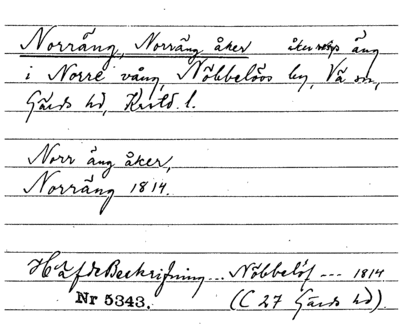 Norräng, Norräng åker åker resp äng
i Norre vång, Nöbbelöos by, Vä sn,
Gärds hd, Kristd. l.
Norr äng åker,
Norräng 1814.
Häfde Beskrifning... Nöbbelöf --- 1814
Nr 5343. (C 27 Gärds hd).